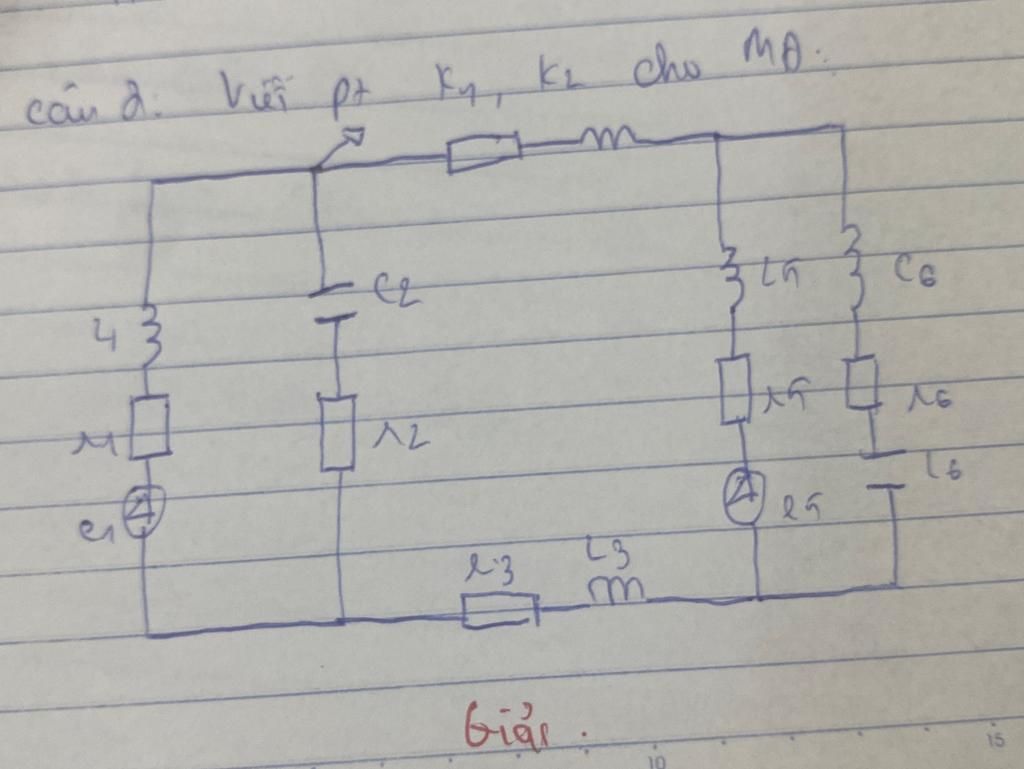 câu 2: Viết pt K1, K2 cho MĐ:
C2
L5
C6
L1
r1
r2
r5
r6
e1
e5
L6
r3
L3
Giải.
10
15